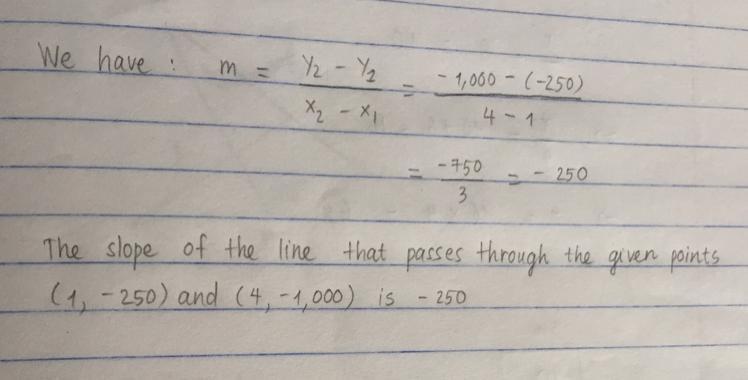 We have : m = y₂ - y₂ / x₂ - x₁ = -1,000 - (-250) / 4 - 1
= -750 / 3 = - 250
The slope of the line that passes through the given points
(1, -250) and (4, -1,000) is - 250